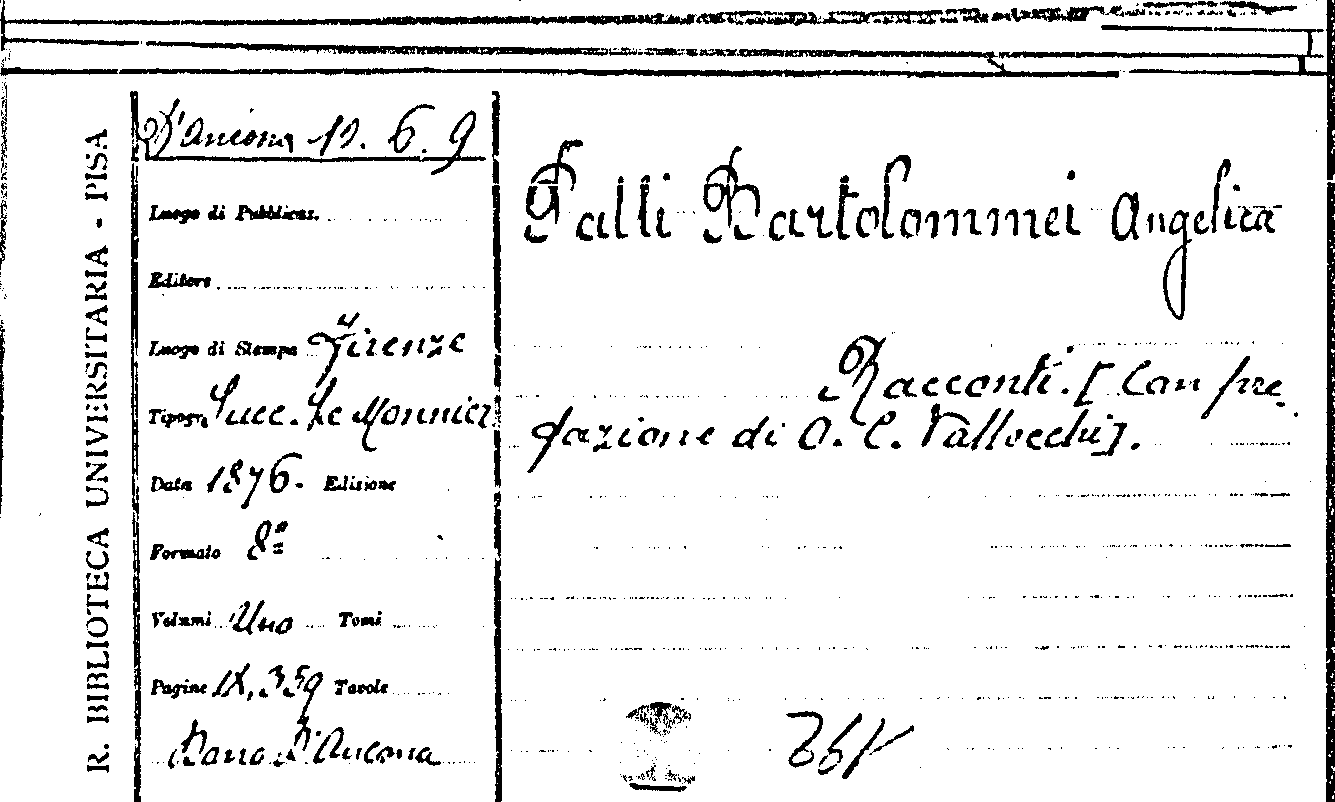 R. BIBLIOTECA UNIVERSITARIA - PISA
D'Ancona 12. 6. 9
Luogo di Pubblicaz.
Editore
Luogo di Stampa Firenze
Tipogr. Succ. Le Monnier
Data 1876. Edizione
Formato 8º
Volumi Uno Tomi
Pagine IX, 359 Tavole
Dono D'Ancona
Palli Bartolommei Angelica
Racconti. [Con pre-
fazione di O. C. Vallecchi].